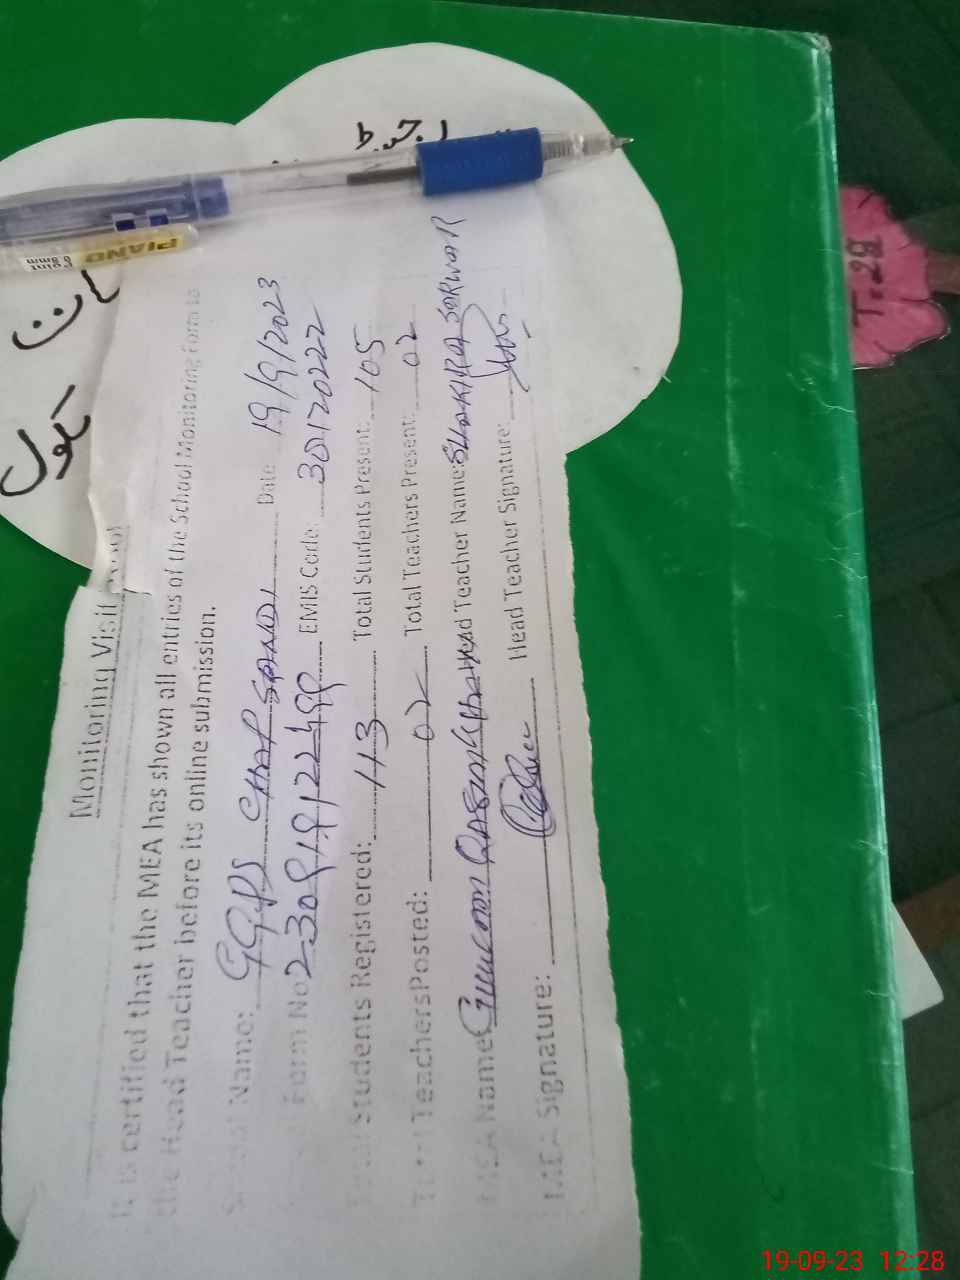 Monitoring Visit
It is certified that the MEA has shown all entries of the School Monitoring Form to
the Head Teacher before its online submission.
School Name: GGPS CHAP SANDI Date 19/9/2023
Form No: EMIS Code: 30120222
Total Students Registered: 113 Total Students Present: 105
Total TeachersPosted: 02 Total Teachers Present: 02
MEA Name: Head Teacher Name: SHAKIRA SARWAR
MEA Signature: Head Teacher Signature:
سکول
PIANO
Point
0.8mm
T=29
19-09-23 12:28